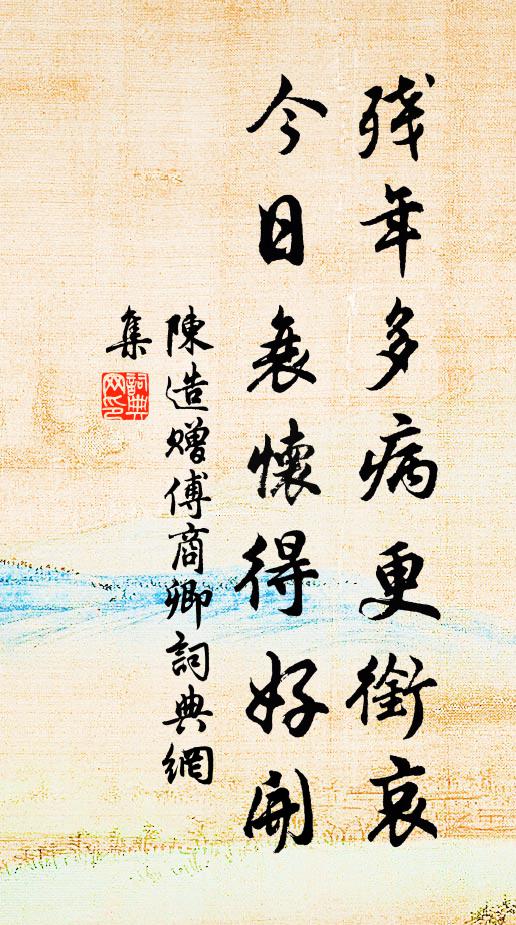 残年多病更銜哀
今日衰懷得好開
陳造贈傅商卿詞典網
集
詞典
网印